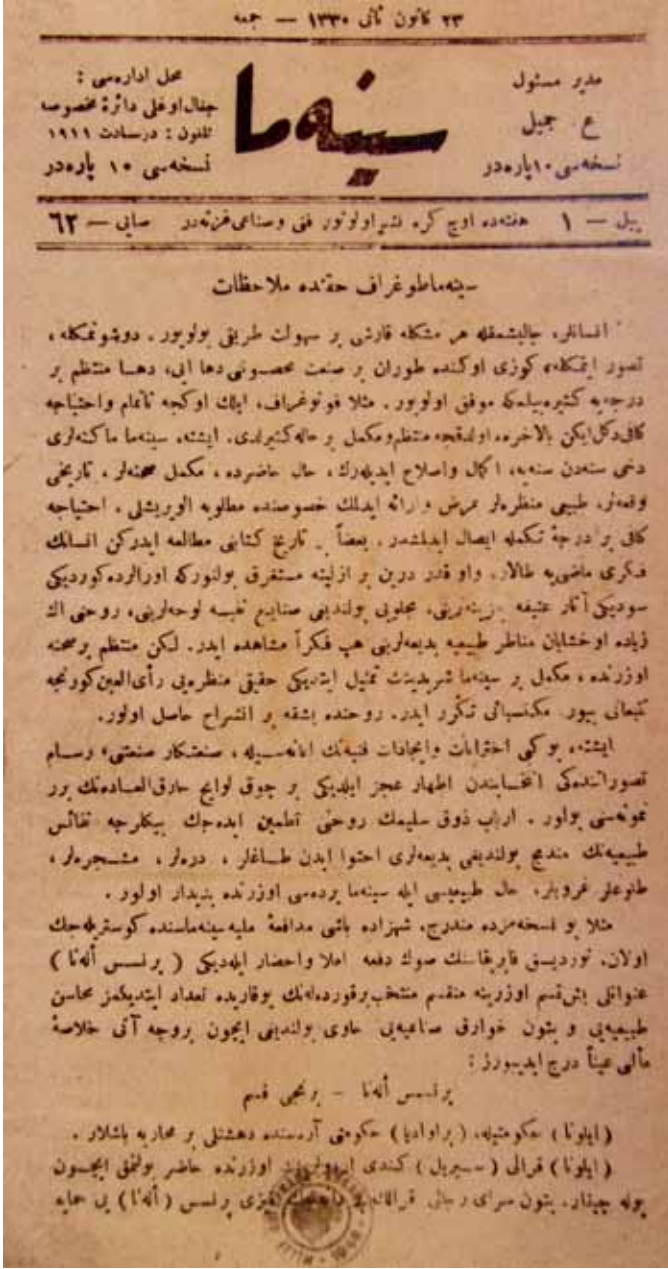 ٢٣ كانون ثانی ١٣٣٠ — جمعه
مدیر مسئول
ع. جمیل
نسخه‌سی ١٠ پاره‌در
سینه‌ما
محل اداره‌سی :
جغال اوغلی دائرهٔ مخصوصه
تلفون : درسعادت ١٩١١
نسخه‌سی ١٠ پاره‌در
ییل — ١ هفته‌ده اوچ كره نشر اولونور فنی و صناعی غزته‌در صایی — ٦٢
سینه‌ماطوغراف حقنده ملاحظات
انسانلر، چالیشمقله هر مشكله قارشی بر سهولت طریقی بولویور . دوشونمكله ،
تصور ایتمكله كوزی اوكنده طوران بر صنعت محصولنی دها ایی، دها منتظم بر
درجه‌یه كتیره‌بیلمكه موفق اولویور . مثلا فوتوغراف، ایلك اوكجه ناتمام واحتیاجه
كافی دكل ایكن بالاخره، اولدقجه منتظم ومكمل بر حاله كتیرلدی. ایشته، سینه‌ما ماكنه‌لری
دخی سنه‌دن سنه‌یه، اكمال واصلاح ایدیله‌رك، حال حاضرده ، مكمل صحنه‌لر ، تاریخی
وقعه‌لر، طبیعی منظره‌لر عرض وارائه ایدلك خصوصنده مطلوبه الویریشلی . احتیاجه
كافی بر درجهٔ تكمله ایصال ایدلمشدر . بعضاً بر تاریخ كتابی مطالعه ایدركن انسانك
فكری ماضی‌یه طالار. واو قدر درین بر ازلیته مستغرق بولنوركه اورالرده كوردیكی
سودیكی آثار عتیقه خزینه‌لرینی، مجلوبی بولندیغی صنایع نفیسه لوحه‌لرینی، روحنی اك
زیاده اوخشایان مناظر طبیعیه بدیعه‌لرینی هپ فكراً مشاهده ایدر. لكن منتظم بر صحنه
اوزرنده ، مكمل بر سینه‌ما شریدینك تمثیل ایتدیكی حقیقی منظره‌یی رأی العین كورنجه
تتبعاتی بیور. مكتسباتی تكرر ایدر. روحنده بشقه بر انشراح حاصل اولور.
ایشته، بوكی اختراعات وایجادات فنیه‌نك اعانه‌سیله ، صنعتكار صنعتی، رسام
تصوراتنده‌كی انتخابندن اظهار عجز ایلدیكی بر چوق لوایح خارق‌العاده‌نك برر
نمونه‌سی بولور . ارباب ذوق سلیمك روحنی تطمین ایده‌جك بیكلرجه نفائس
طبیعیه‌نك مندمج بولندیغی بدیعه‌لری احتوا ایدن طاغلر ، دره‌لر ، مشجره‌لر ،
طلوعلر غروبلر، حال طبیعیسی ایله سینه‌ما پرده‌سی اوزرنده پدیدار اولور .
مثلا بو نسخه‌مزده مندرج، شهزاده باشی مدافعهٔ ملیه سینه‌ماسنده كوستریله‌جك
اولان، نوردیسق فابریقاسنك صوك دفعه املا واحضار ایله‌دیكی ( پرنسس أله‌نا )
عنوانلی بش قسم اوزرینه منقسم منتخب بر قورده‌له‌نك یوقاریده تعداد ایتدیكمز محاسن
طبیعیه‌یی و بتون خوارق صناعیه‌یی حاوی بولندیغی ایچون بروجه آتی خلاصهٔ
مآلی عیناً درج ایدییورز :
پرنسس أله‌نا – برنجی قسم
( ایلونا ) حكومتیله، ( پراوادیا ) حكومتی آره‌سنده دهشتلی بر محاربه باشلار .
( ایلونا ) قرالی ( سیریل ) كندی اردولرینك اوزرنده حاضر بولنمق ایچون
یوله چیقار. بتون سرای رجالی قرالك قیزی پرنسس ( أله‌نا ) یی حمایه